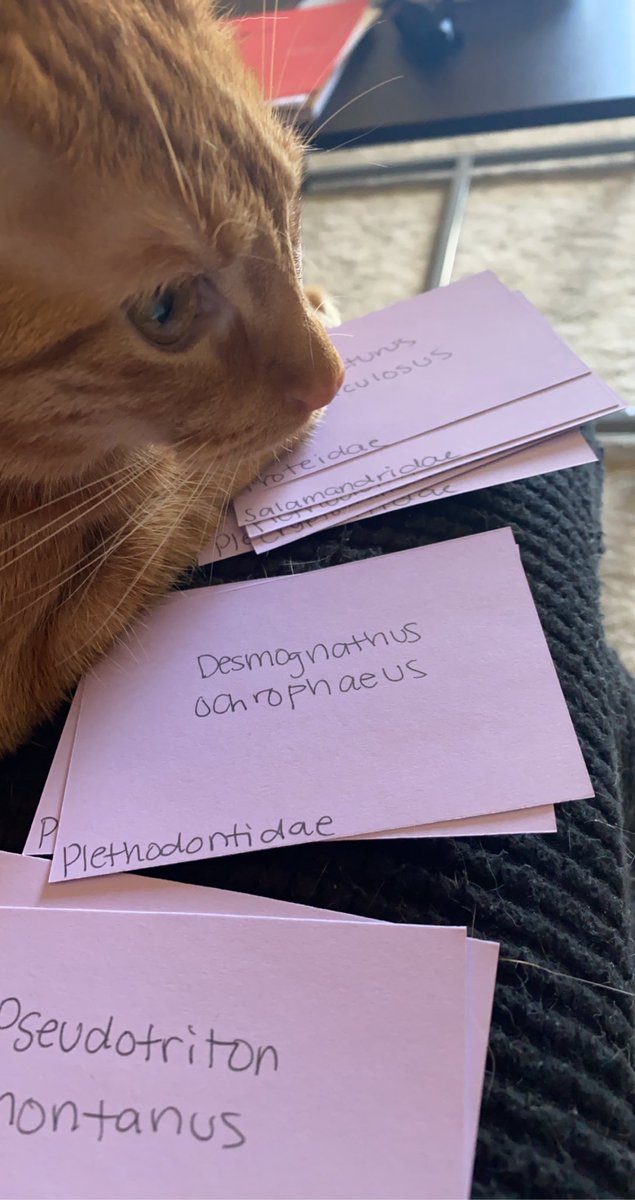 turus
culosus
roteidae
Salamandridae
Desmognathus
ochrophaeus
P
Plethodontidae
Pseudotriton
montanus